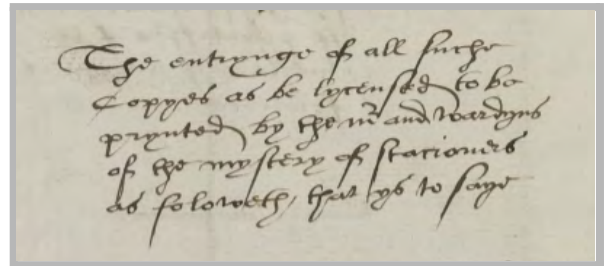 The entrynge of all suche
Copyes as be lycensed to be
prynted by the mr and wardyns
of the mystery of stacioners
as foloweth, that ys to saye